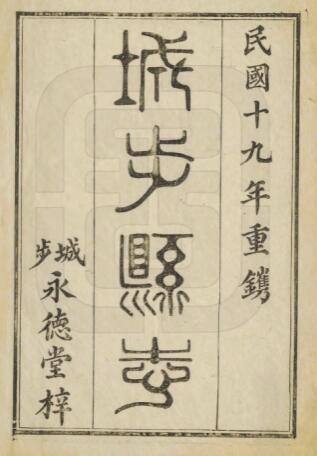 民國十九年重鐫
城步縣志
城步永德堂梓